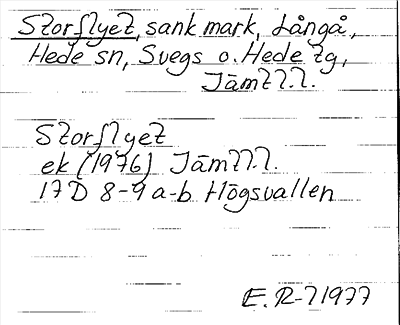 Storflyet, sank mark, Långå,
Hede sn, Svegs o. Hede tg,
Jämtl.l.
Storflyet
ek (1976) Jämtl.l.
17D 8-9 a-b Högsvallen
E.R-71977